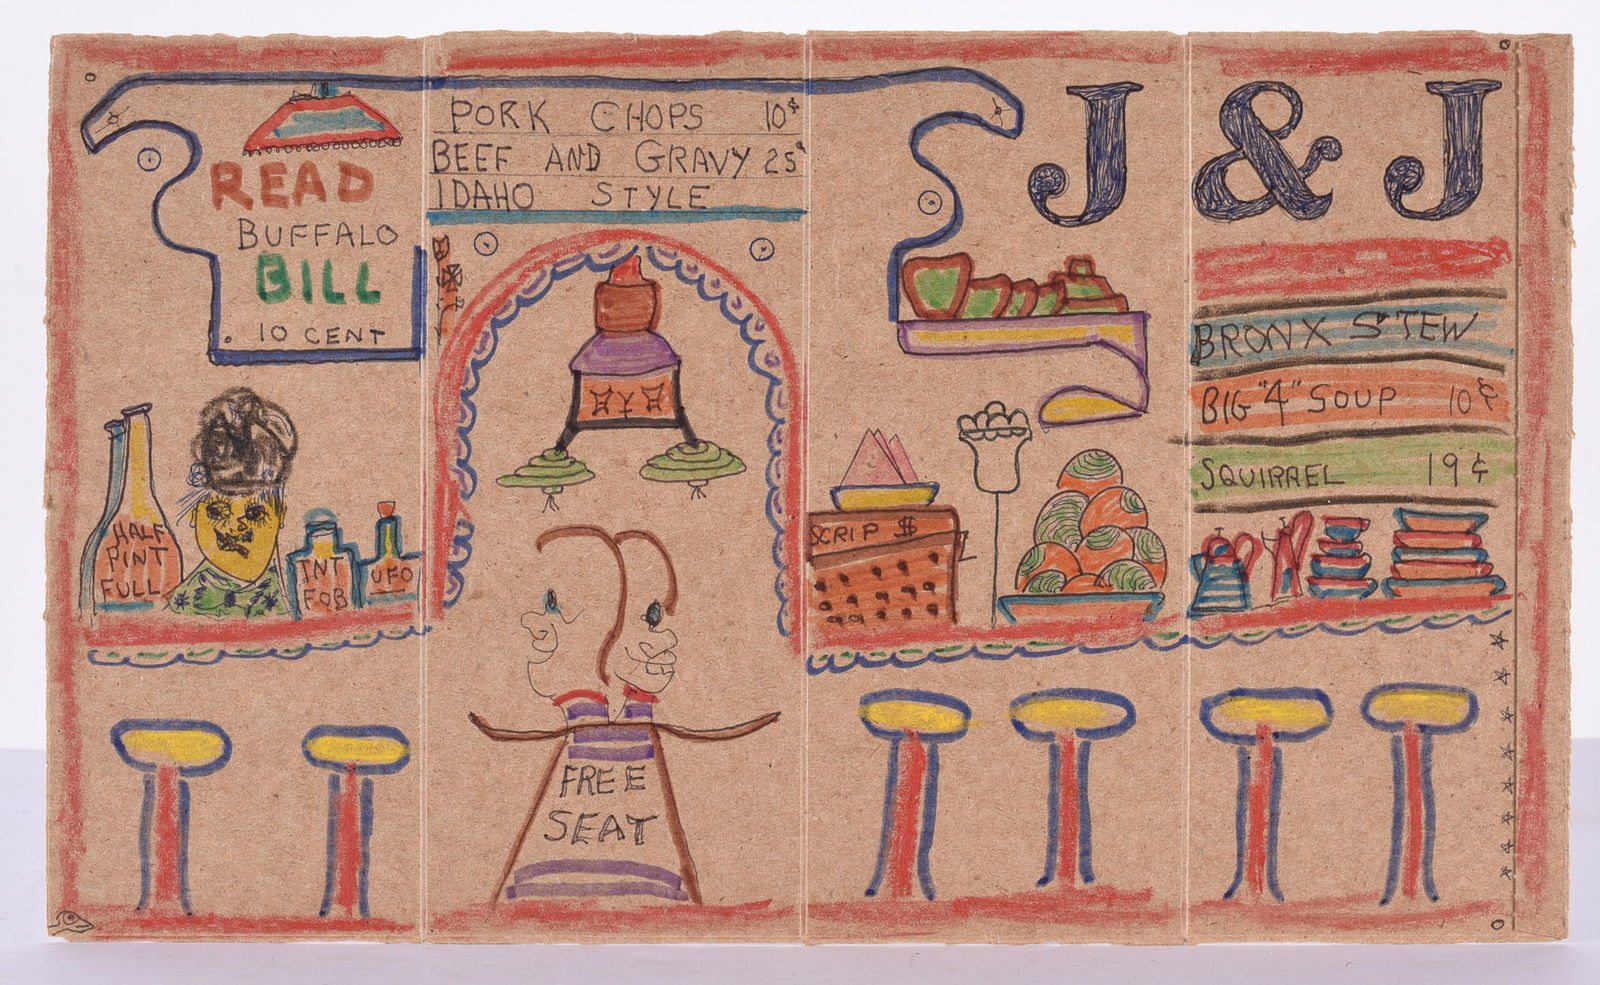 READ
BUFFALO
BILL
10 CENT
PORK CHOPS 10¢
BEEF AND GRAVY 25¢
IDAHO STYLE
J & J
BRONX STEW
BIG "4" SOUP 10¢
SQUIRREL 19¢
HALF
PINT
FULL
TNT
FOB
UFO
SCRIP $
FREE
SEAT